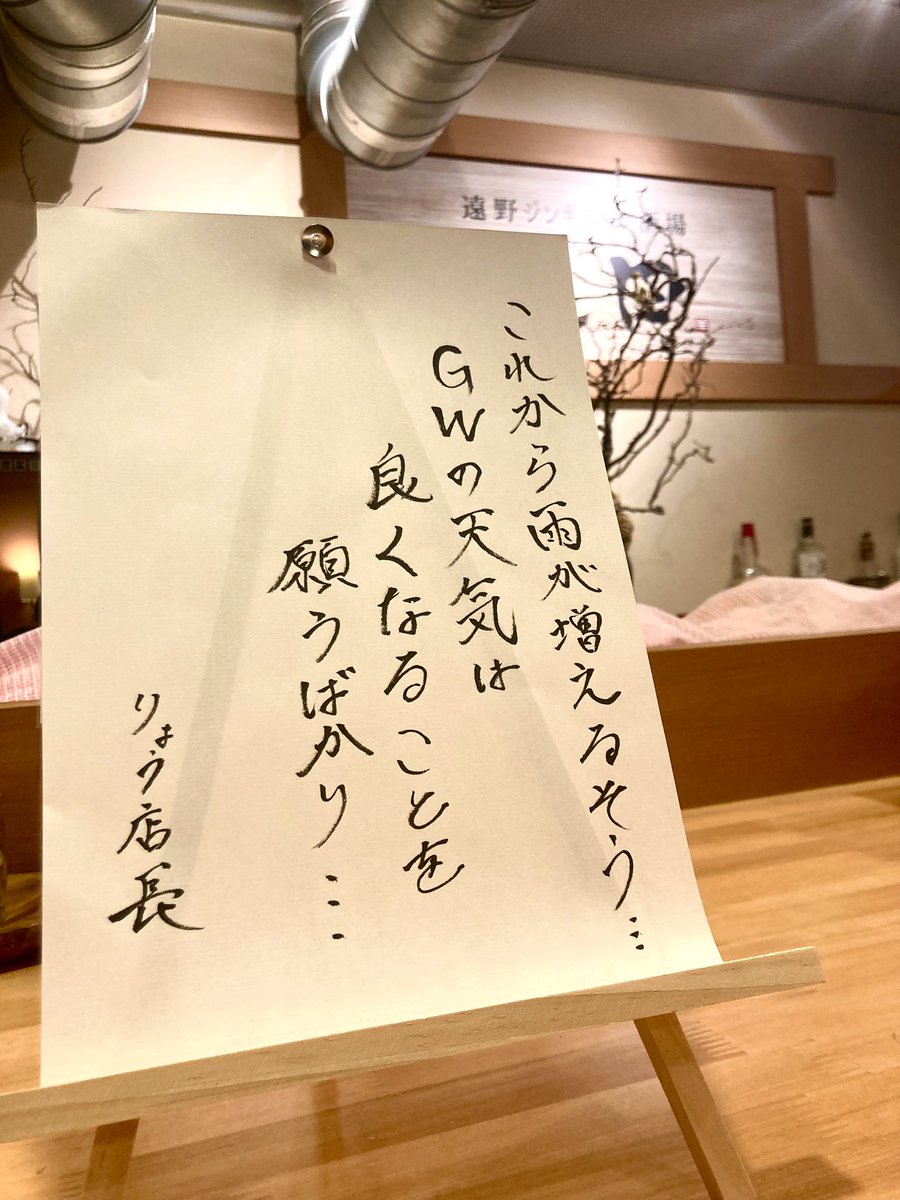 これから雨が増えるそう…
GWの天気は
良くなることを
願うばかり…
りょう店長
遠野ジンギ
場